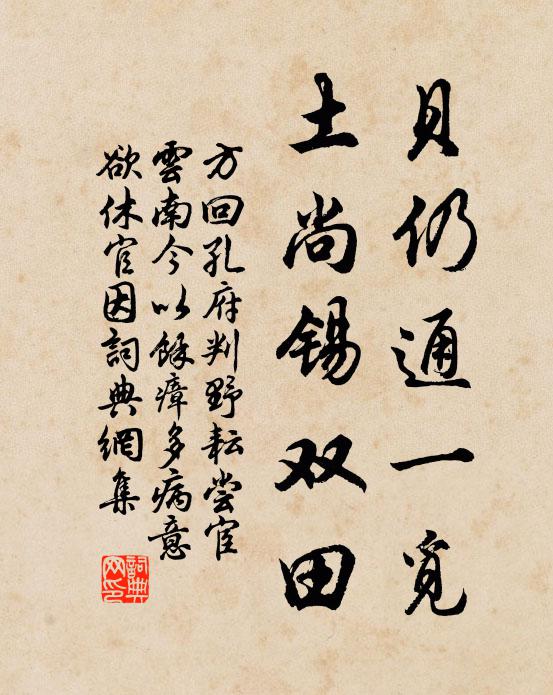 貝仍通一覓
土尚錫双田
方回孔府判野耘嘗宦
雲南今以餘瘴多病意
欲休官因詞典網集
詞典网印